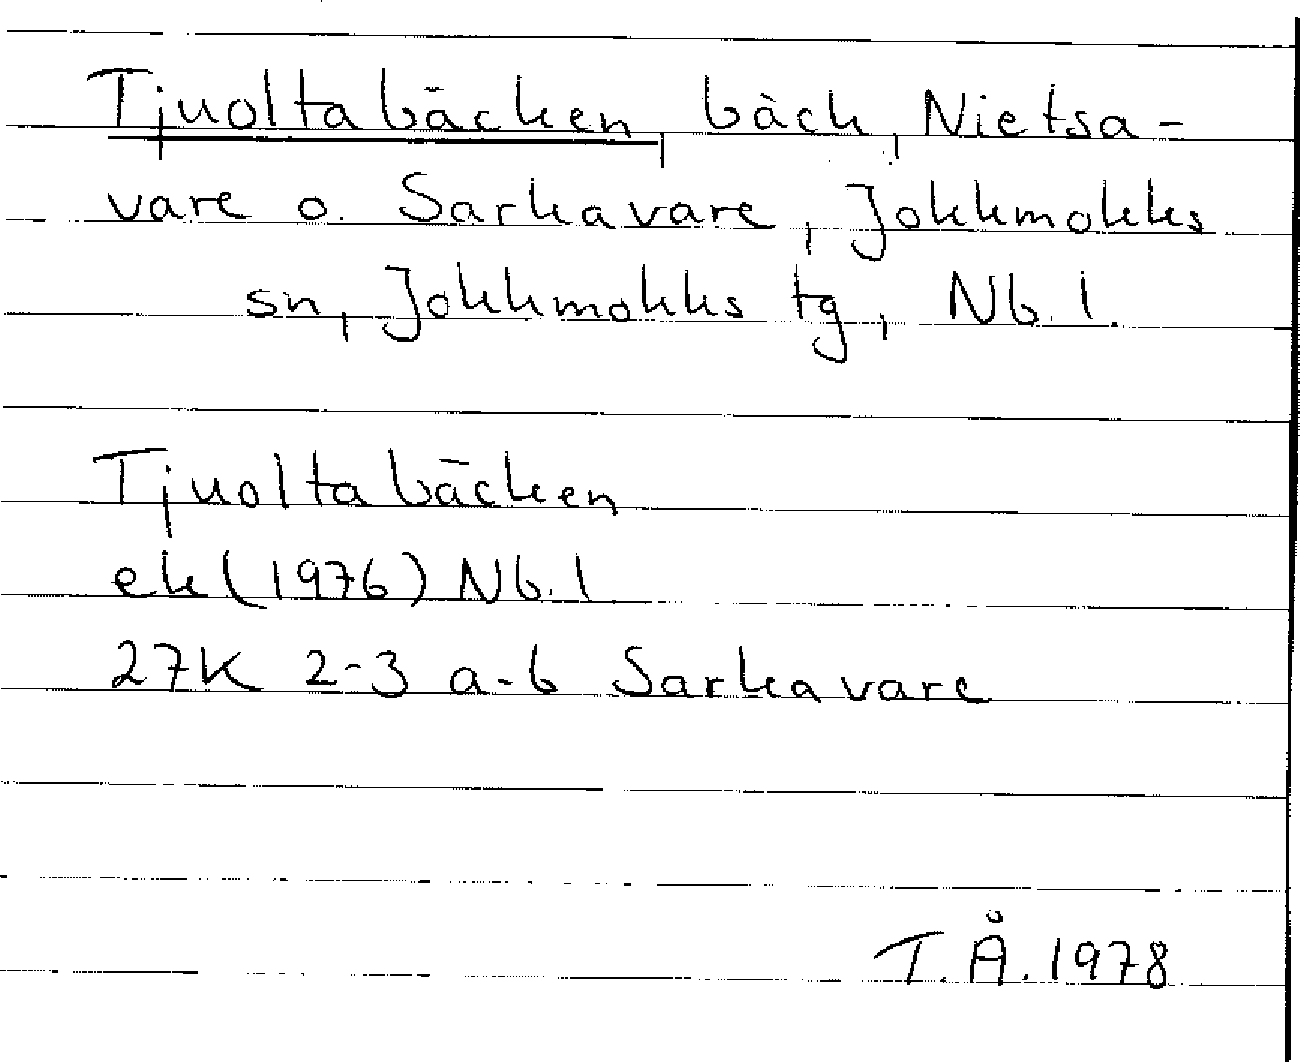 Tjuoltabäcken, bäck, Nietsa-
vare o. Sarkavare, Jokkmokks
sn, Jokkmokks tg, Nb. l.
Tjuoltabäcken
ek (1976) Nb. l
27K 2-3 a-b Sarkavare
T. Å. 1978